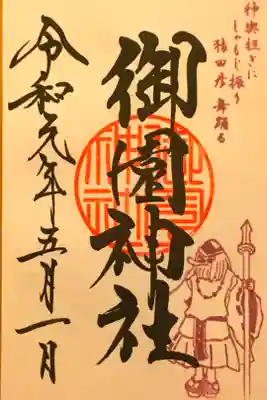 神輿担ぎに
しゃもじ振り
猿田彦舞踊る
御園神社
令和元年五月一日